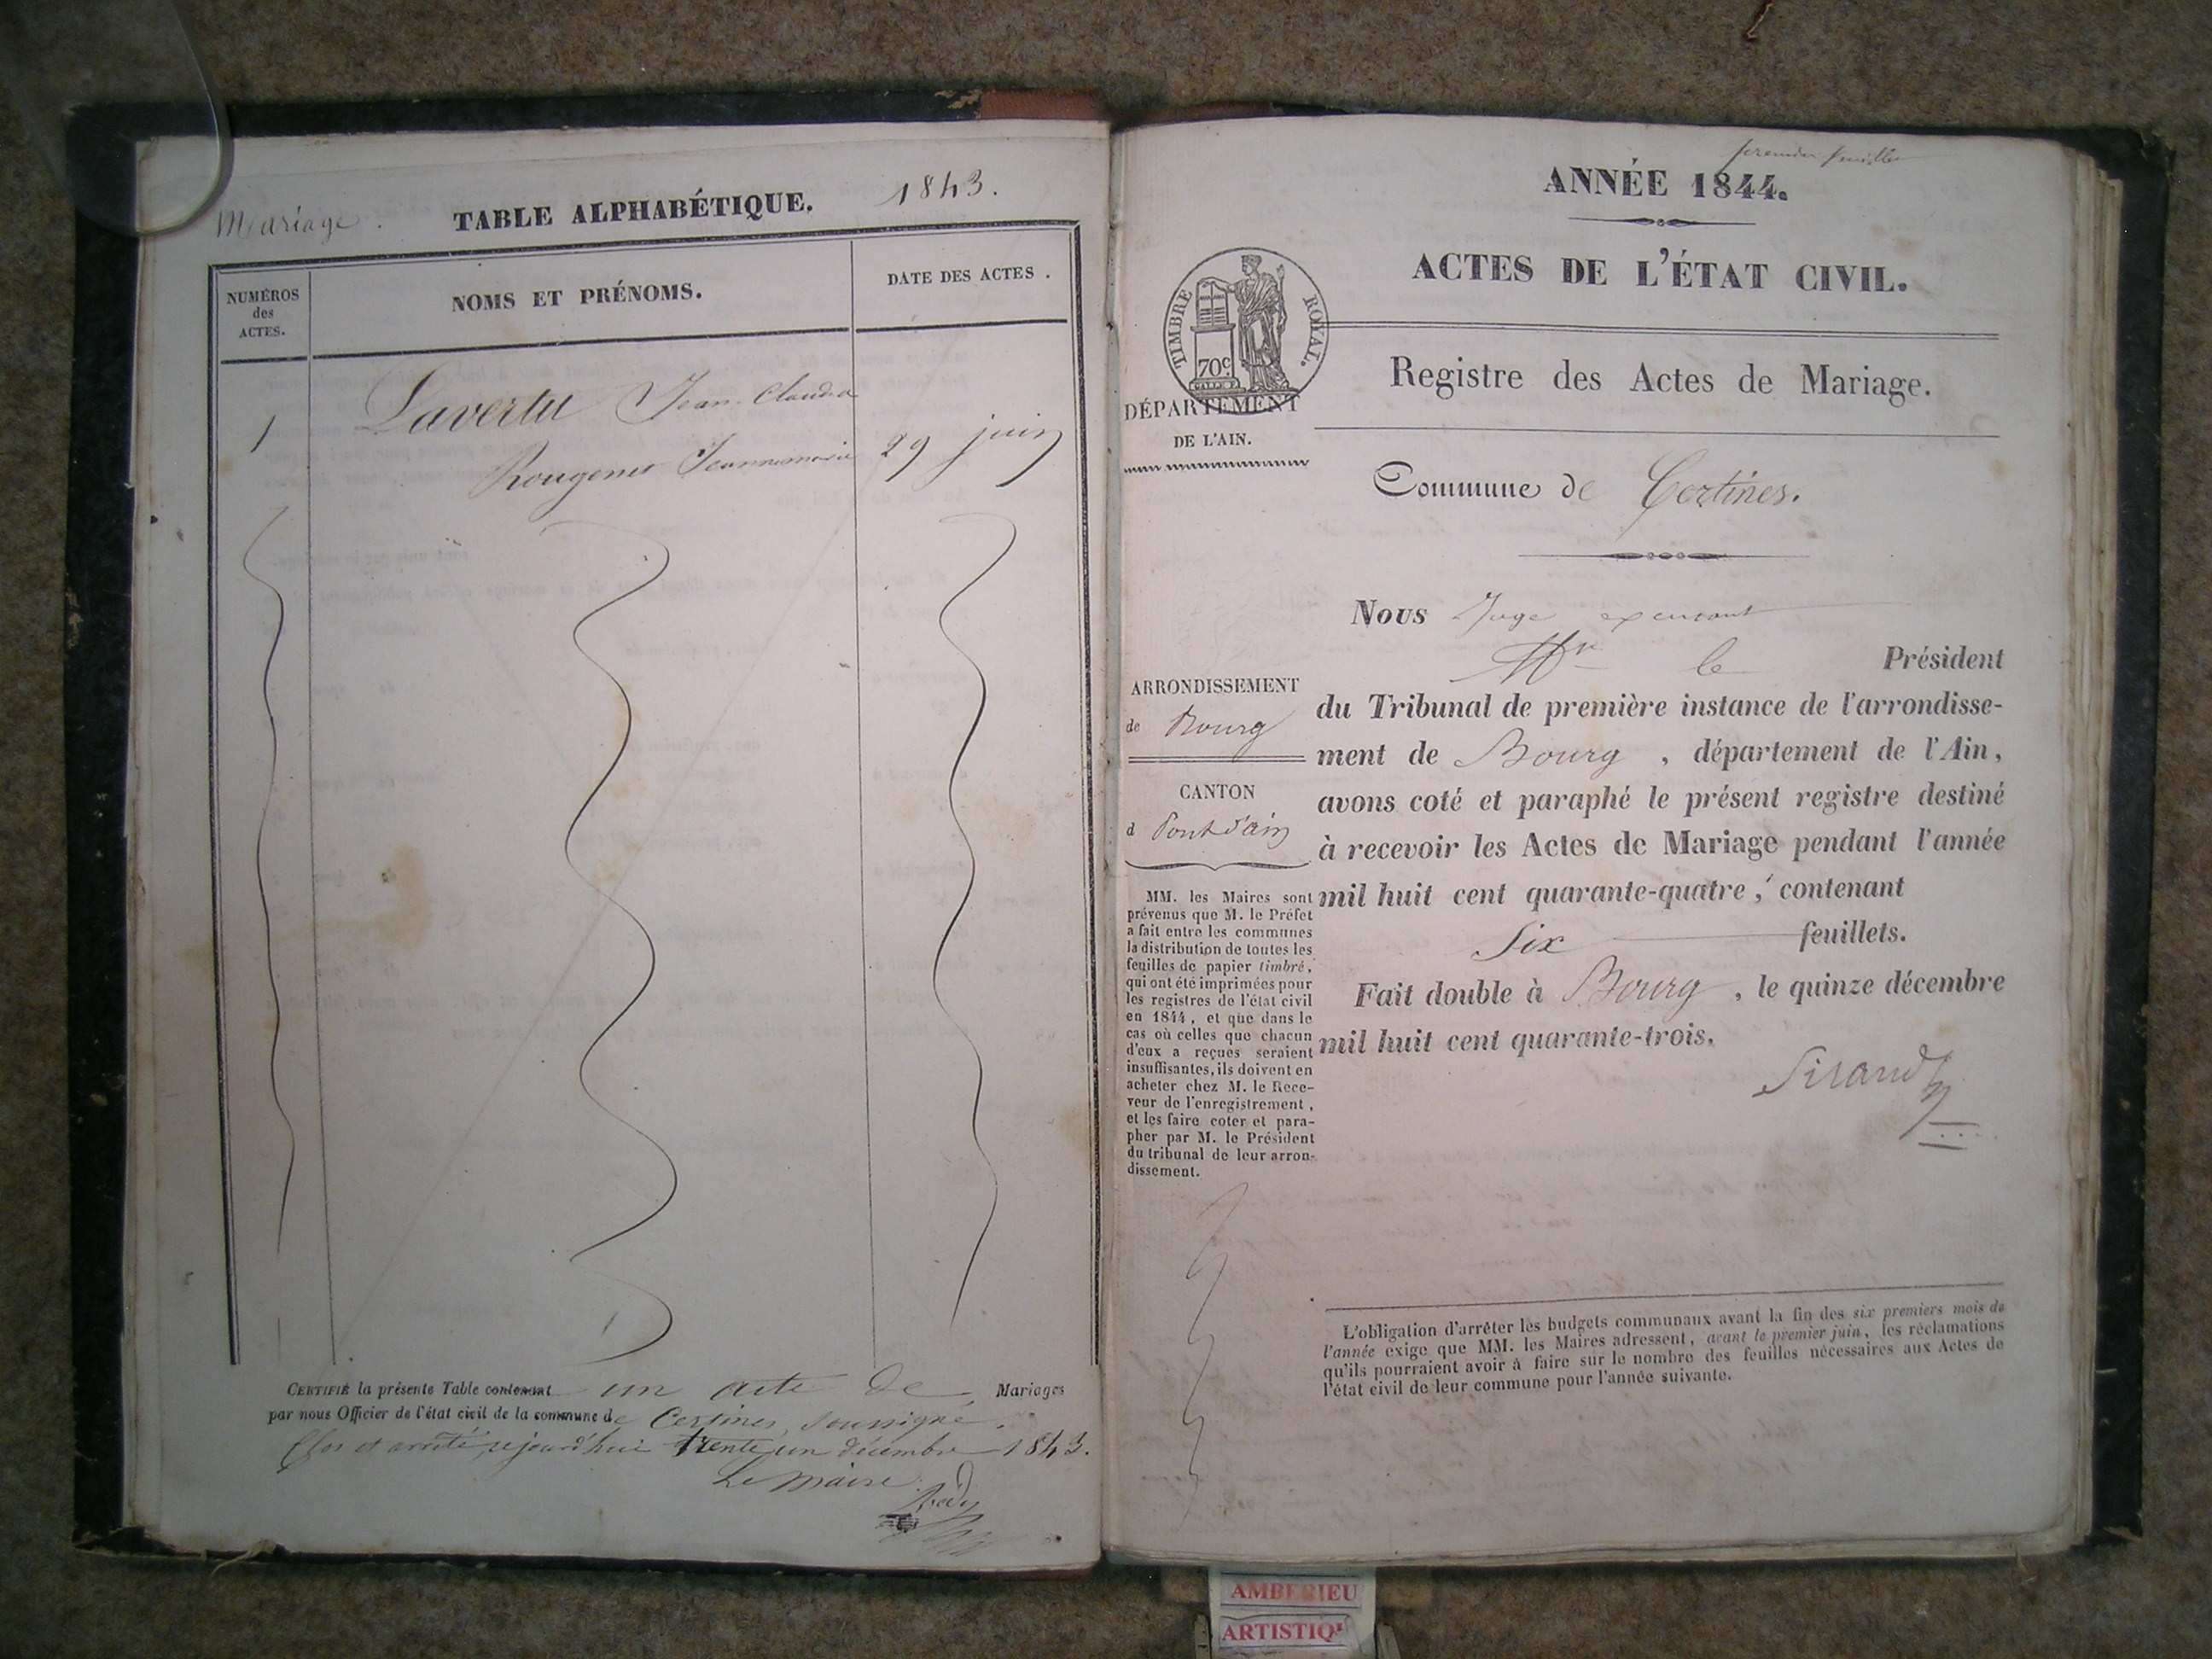 Mariage.
TABLE ALPHABÉTIQUE.
1843.
NUMÉROS
des
ACTES.
NOMS ET PRÉNOMS.
DATE DES ACTES .
1
Lavertu Jean Claude
Jeannemarie
29 juin
CERTIFIÉ la présente Table contenant un acte de Mariages
par nous Officier de l'état civil de la commune de Certines, soussigné.
Clos et arrêté, cejourd'hui trente un décembre 1843.
Le maire
premier feuillet
ANNÉE 1844.
ACTES DE L'ÉTAT CIVIL.
TIMBRE ROYAL.
70c.
Registre des Actes de Mariage.
DÉPARTEMENT
DE L'AIN.
Commune de Certines.
Nous Juge exerçant
Mr le Président
du Tribunal de première instance de l'arrondisse-
ment de Bourg , département de l'Ain,
avons coté et paraphé le présent registre destiné
à recevoir les Actes de Mariage pendant l'année
mil huit cent quarante-quatre, contenant
Six feuillets.
Fait double à Bourg , le quinze décembre
mil huit cent quarante-trois.
Sirand
ARRONDISSEMENT
de Bourg
CANTON
d Pont d'ain
MM. les Maires sont
prévenus que M. le Préfet
a fait entre les communes
la distribution de toutes les
feuilles de papier timbré,
qui ont été imprimées pour
les registres de l'état civil
en 1844, et que dans le
cas où celles que chacun
d'eux a reçues seraient
insuffisantes, ils doivent en
acheter chez M. le Rece-
veur de l'enregistrement,
et les faire coter et para-
pher par M. le Président
du tribunal de leur arron-
dissement.
L'obligation d'arrêter les budgets communaux avant la fin des six premiers mois de
l'année exige que MM. les Maires adressent, avant le premier juin, les réclamations
qu'ils pourraient avoir à faire sur le nombre des feuilles nécessaires aux Actes de
l'état civil de leur commune pour l'année suivante.
AMBERIEU
ARTISTIQ